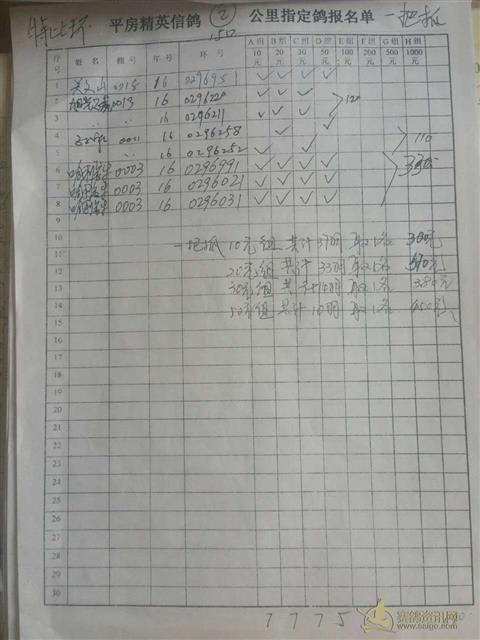 特比环 平房精英信鸽 ② 公里指定鸽报名单 一把抓
序号 姓名 棚号 年号 环号 A组10元 B组20元 C组30元 D组50元 E组100元 F组200元 G组500元 H组1000元
1 0018 16 0296951 ✓ ✓ ✓ ✓
2 0013 16 0296220 ✓ ✓ ✓
3 16 0296211 ✓ ✓ ✓ 120
4 0011 16 0296258 ✓ ✓
5 16 0296252 ✓ ✓ 110
6 0003 16 0296991 ✓ ✓ ✓ ✓
7 0003 16 0296021 ✓ ✓ ✓ ✓
8 0003 16 0296031 ✓ ✓ ✓ ✓
9
10 一把抓 10元组 共计37羽 取1名
11 20元组 共计33羽 取1名
12 30元组 共计 取1名 380元
13 50元组 共计10羽 取1名 450元
14
15
16
17
18
19
20
21
22
23
24
25
26
27
28
29
30
7 7 7 5
赛鸽资讯网
www.saigo.com